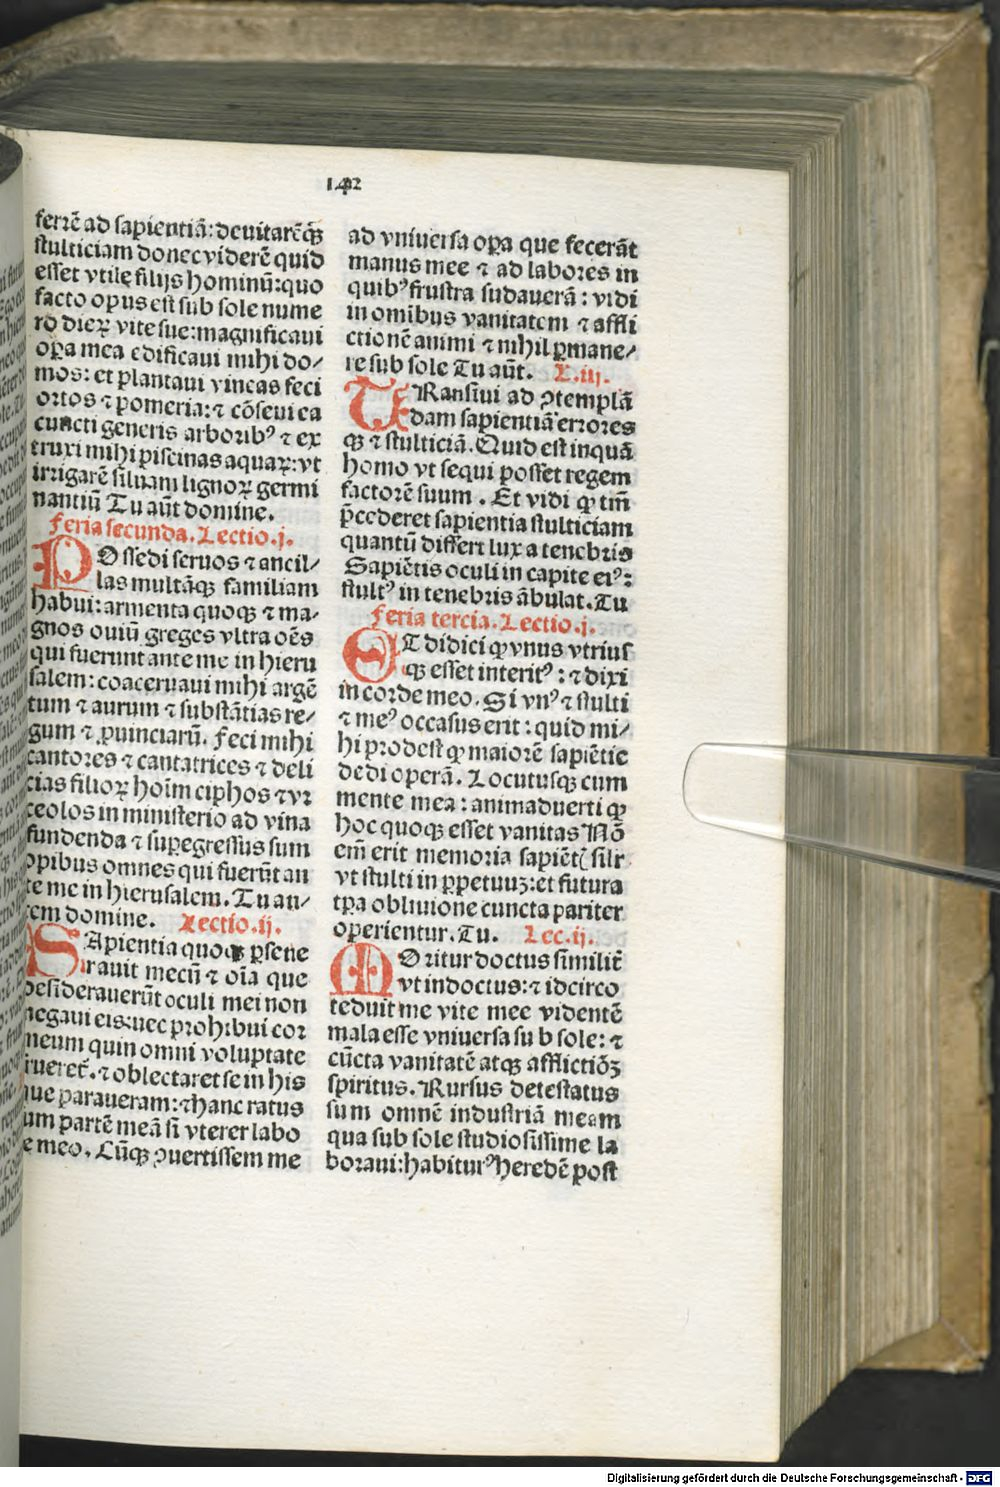 142
ferrē ad sapientiā: deuitarēqꝫ
stulticiam donec viderē quid
esset vtile filijs hominū: quo
facto opus est sub sole nume
ro dieꝝ vite sue: magnificaui
oꝑa mea edificaui mihi do/
mos: et plantaui vincas feci
ortos ⁊ pomeria: ⁊ cōseui ea
cuncti generis arboribꝰ ⁊ ex
truxi mihi piscinas aquaꝝ: vt
irrigarē siluam lignoꝝ germi
nantiū Tu aūt domine.
Feria secunda. Lectio.j.
POssedi seruos ⁊ ancil/
las multāqꝫ familiam
habui: armenta quoqꝫ ⁊ ma-
gnos ouiū greges vltra oēs
qui fuerunt ante me in hieru
salem: coaceruaui mihi argē
tum ⁊ aurum ⁊ substātias re/
gum ⁊ ꝓuinciarū. Feci mihi
cantores ⁊ cantatrices ⁊ deli
cias filioꝝ hoīm ciphos ⁊ vr
ceolos in ministerio ad vina
fundenda ⁊ suꝑegressus sum
opibus omnes qui fuerūt an
te me in hierusalem. Tu au/
tem domine. Lectio.ij.
SApientia quoqꝫ ꝑseue
rauit mecū ⁊ oīa que
desiderauerūt oculi mei non
negaui eis: nec prohibui cor
meum quin omni voluptate
frueret̄. ⁊ oblectaret se in his
que paraueram: ⁊ hanc ratus
sum partē meā si vterer labo
re meo. Cūqꝫ ꝯuertissem me
ad vniuersa oꝑa que fecerāt
manus mee ⁊ ad labores in
quibꝰ frustra sudauerā: vidi
in omībus vanitatem ⁊ affli
ctionē animi ⁊ nihil ꝑmane/
re sub sole Tu aūt. L.iij.
TRansiui ad ꝯtemplā
dam sapientiā errores
qꝫ ⁊ stulticiā. Quid est inquā
homo vt sequi posset regem
factorē suum. Et vidi ꝙ tm̄
p̄cederet sapientia stulticiam
quantū differt lux a tenebris
Sapiētis oculi in capite eiꝰ:
stultꝰ in tenebris ābulat. Tu
Feria tercia. Lectio.j.
ET didici ꝙ vnus vtrius
qꝫ esset interitꝰ: ⁊ dixi
in corde meo. Si vnꝰ ⁊ stulti
⁊ meꝰ occasus erit: quid mi/
hi prodest ꝙ maiorē sapiētie
dedi operā. Locutusqꝫ cum
mente mea: animaduerti ꝙ
hoc quoqꝫ esset vanitas Nō
em̄ erit memoria sapiēt( silr
vt stulti in ꝑpetuuꝫ: et futura
tꝑa obliuione cuncta pariter
operientur. Tu. Lec.ij.
MOritur doctus similit̄
vt indoctus: ⁊ idcirco
teduit me vite mee videntē
mala esse vniuersa sub sole: ⁊
cūcta vanitatē atqꝫ afflictiōꝫ
spiritus. Rursus detestatus
sum omnē industriā meam
qua sub sole studiosissime la
boraui: habiturꝰ heredē post
Digitalisierung gefördert durch die Deutsche Forschungsgemeinschaft - DFG